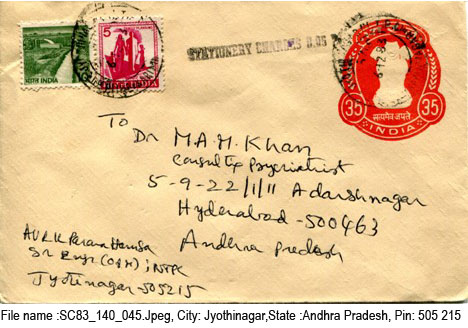 भारत INDIA
5
INDIA
STATIONERY CHARGES 0.05
35
35
सत्यमेव जयते
INDIA
To
Dr M.A.M. Khan
Consultg Psychiatrist
5-9-22/1/11 Adarshnagar
Hyderabad-500463
Andhra Pradesh
AVRK Parama Hamsa
Sr Engr (O&M) ; NTPC
Jyothinagar-505215
File name :SC83_140_045.Jpeg, City: Jyothinagar,State :Andhra Pradesh, Pin: 505 215